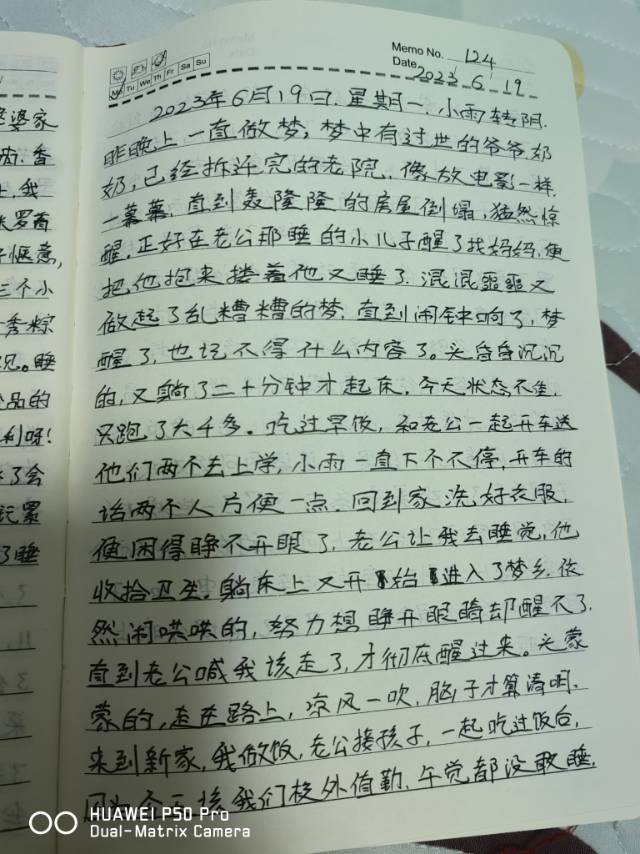 Memo No. 124
Mo Tu We Th Fr Sa Su
Date 2023. 6. 19
2023年6月19日.星期一.小雨转阴.
昨晚上一直做梦,梦中有过世的爷爷.奶
奶,已经拆迁完的老院.像放电影一样,
一幕幕.直到轰隆隆的房屋倒塌,猛然惊
醒.正好在老公那睡的小儿子醒了找妈妈,便
把他抱来搂着他又睡了.混混噩噩又
做起了乱糟糟的梦.直到闹钟响了,梦
醒了,也记不得什么内容了。头昏昏沉沉
的,又躺了二十分钟才起床.今天状态不佳,
只跑了六千多。吃过早饭,和老公一起开车送
他们两个去上学,小雨一直下个不停,开车的
话两个人方便一点.回到家洗好衣服,
便困得睁不开眼了,老公让我去睡觉,他
收拾卫生.躺床上又开始进入了梦乡.依
然闹哄哄的,努力想睁开眼睛却醒不了.
直到老公喊我该走了,才彻底醒过来。头蒙
蒙的,走在路上,凉风一吹,脑子才算清明.
来到新家,我做饭,老公接孩子,一起吃过饭后,
因为今天该我们校外值勤.午觉都没敢睡,
婆家
香
上,我
罗
惬意,
三个小
粽
况。睡
品的
利呀!
了会
玩累
了睡
HUAWEI P50 Pro
Dual-Matrix Camera